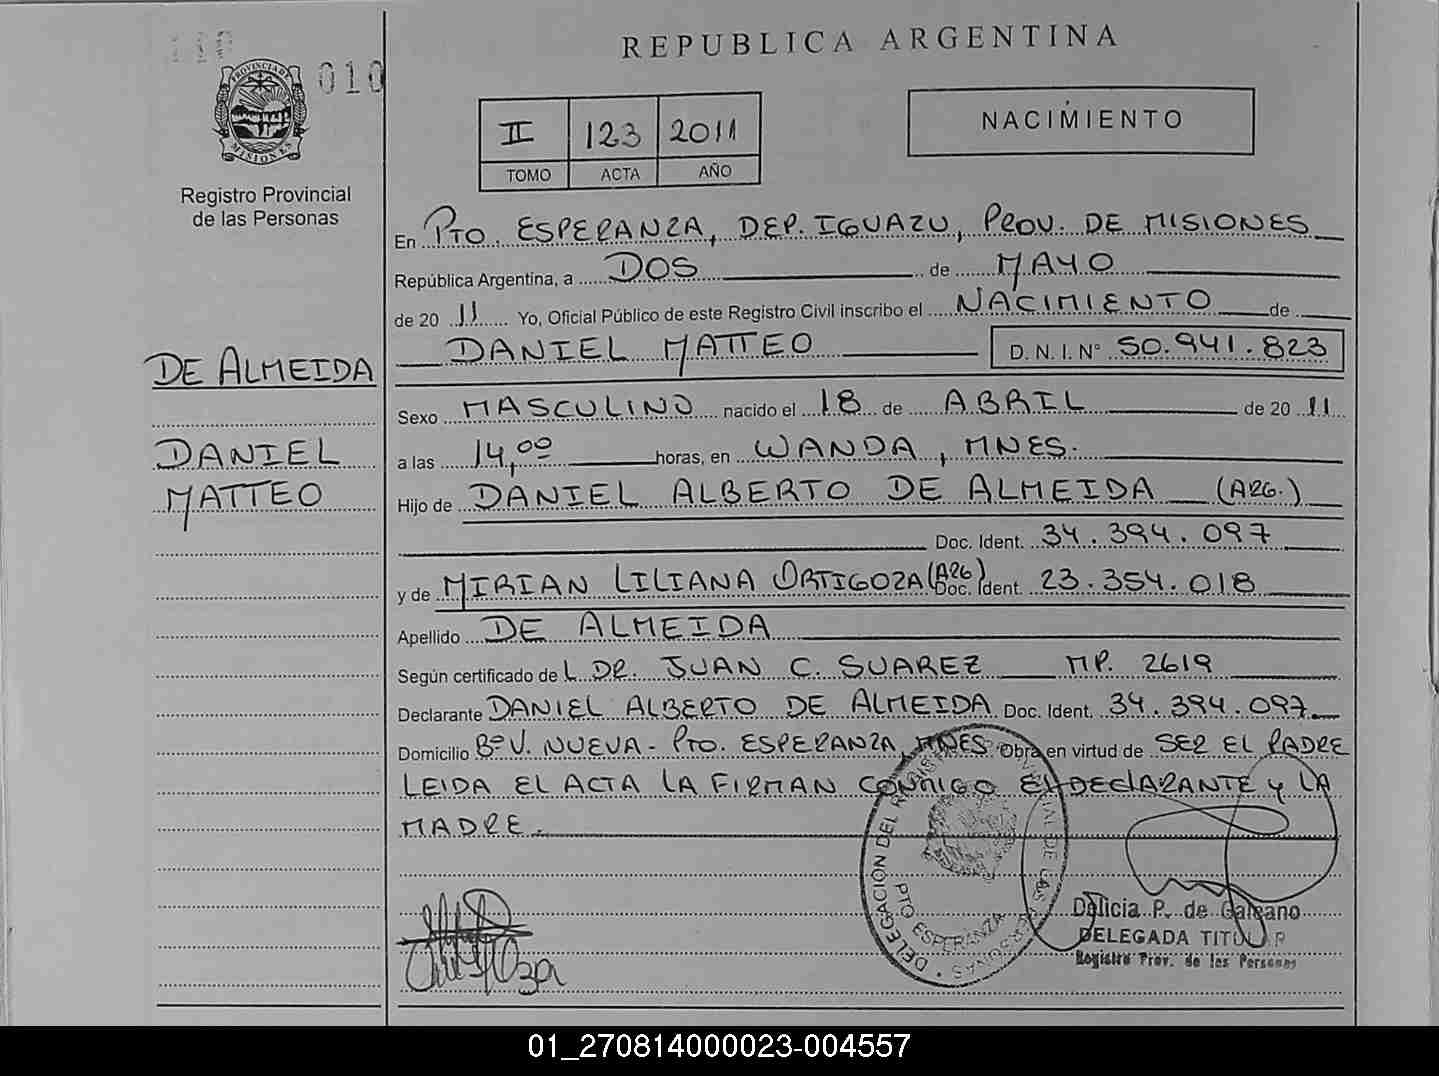 010
PROVINCIA DE
MISIONES
Registro Provincial
de las Personas
DE ALMEIDA
DANIEL
MATTEO
REPUBLICA ARGENTINA
II 123 2011
TOMO ACTA AÑO
NACIMIENTO
En PTO. ESPERANZA, DEP. IGUAZU, PROV. DE MISIONES
República Argentina, a DOS de MAYO
de 20 11 Yo, Oficial Público de este Registro Civil inscribo el NACIMIENTO de
DANIEL MATTEO D.N.I.Nº 50.941.823
Sexo MASCULINO nacido el 18 de ABRIL de 20 11
a las 14,00 horas, en WANDA, MNES.
Hijo de DANIEL ALBERTO DE ALMEIDA (ARG.)
Doc. Ident. 34.394.097
y de MIRIAN LILIANA ORTIGOZA (ARG) Doc. Ident. 23.354.018
Apellido DE ALMEIDA
Según certificado de L DR. JUAN C. SUAREZ MP. 2619
Declarante DANIEL ALBERTO DE ALMEIDA Doc. Ident. 34.394.097
Domicilio Bº V. NUEVA - PTO. ESPERANZA, MNES Obra en virtud de SER EL PADRE
LEIDA EL ACTA LA FIRMAN CONMIGO EL DECLARANTE Y LA
MADRE.
DELEGACIÓN DEL REGISTRO PROVINCIAL DE LAS PERSONAS
PTO ESPERANZA
Delicia P. de Galeano
DELEGADA TITULAR
Registro Prov. de las Personas
01_270814000023-004557